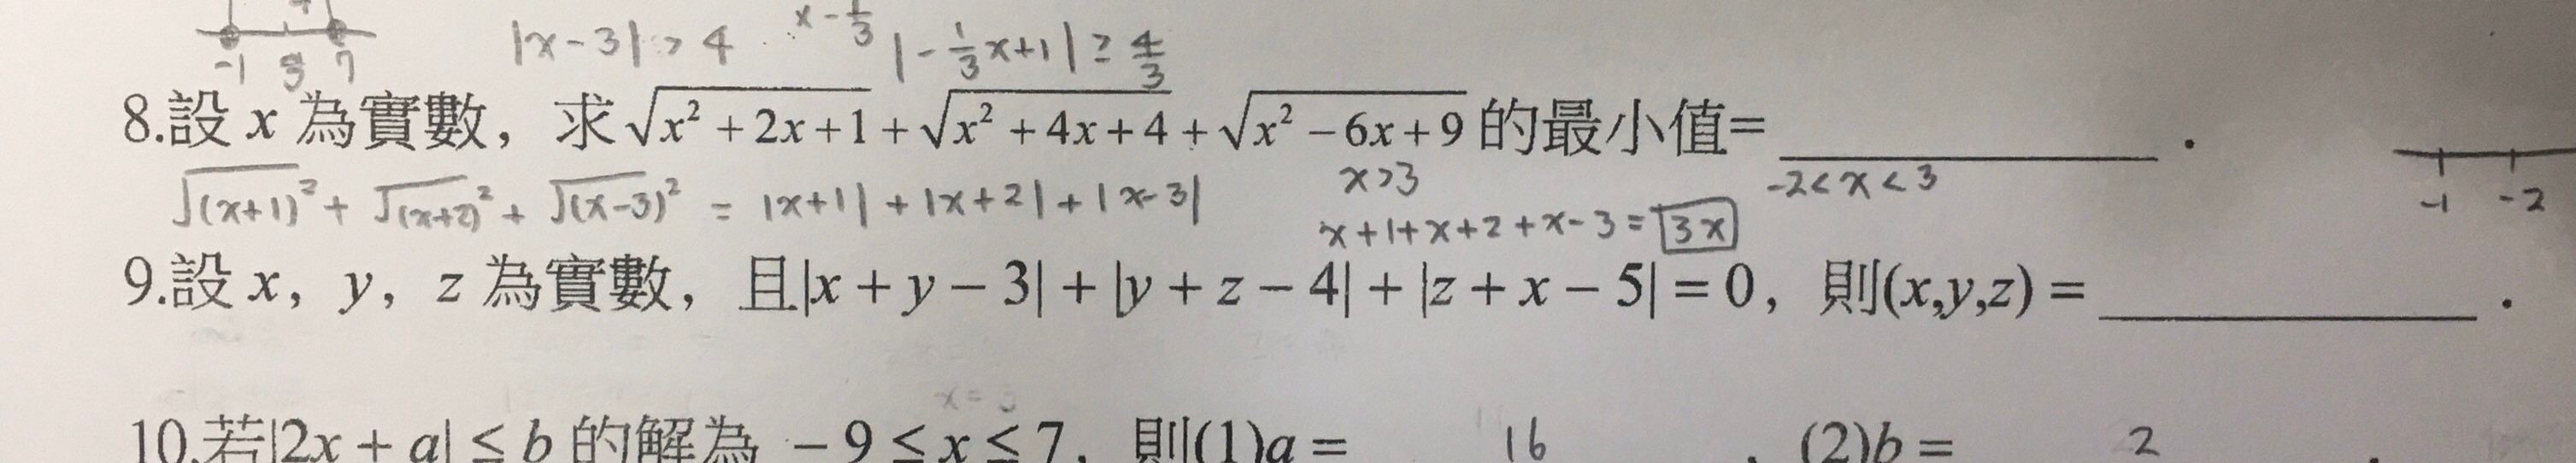 -1 3 7 |x-3| > 4 x-1/3 |-1/3x+1| ≥ 4/3
8.設 x 為實數，求 √(x²+2x+1) + √(x²+4x+4) + √(x²-6x+9) 的最小值= .
√(x+1)² + √(x+2)² + √(x-3)² = |x+1| + |x+2| + |x-3| x>3 -2<x<3 -1 -2
x+1+x+2+x-3= 3x
9.設 x，y，z 為實數，且|x+y-3|+|y+z-4|+|z+x-5|=0，則(x,y,z)= .
10.若|2x+a|≤b 的解為 -9≤x≤7，則(1)a= 16 ，(2)b= 2 .